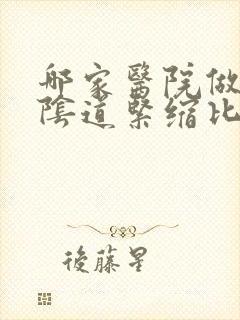 哪家醫院做
陰道緊縮比
後藤星